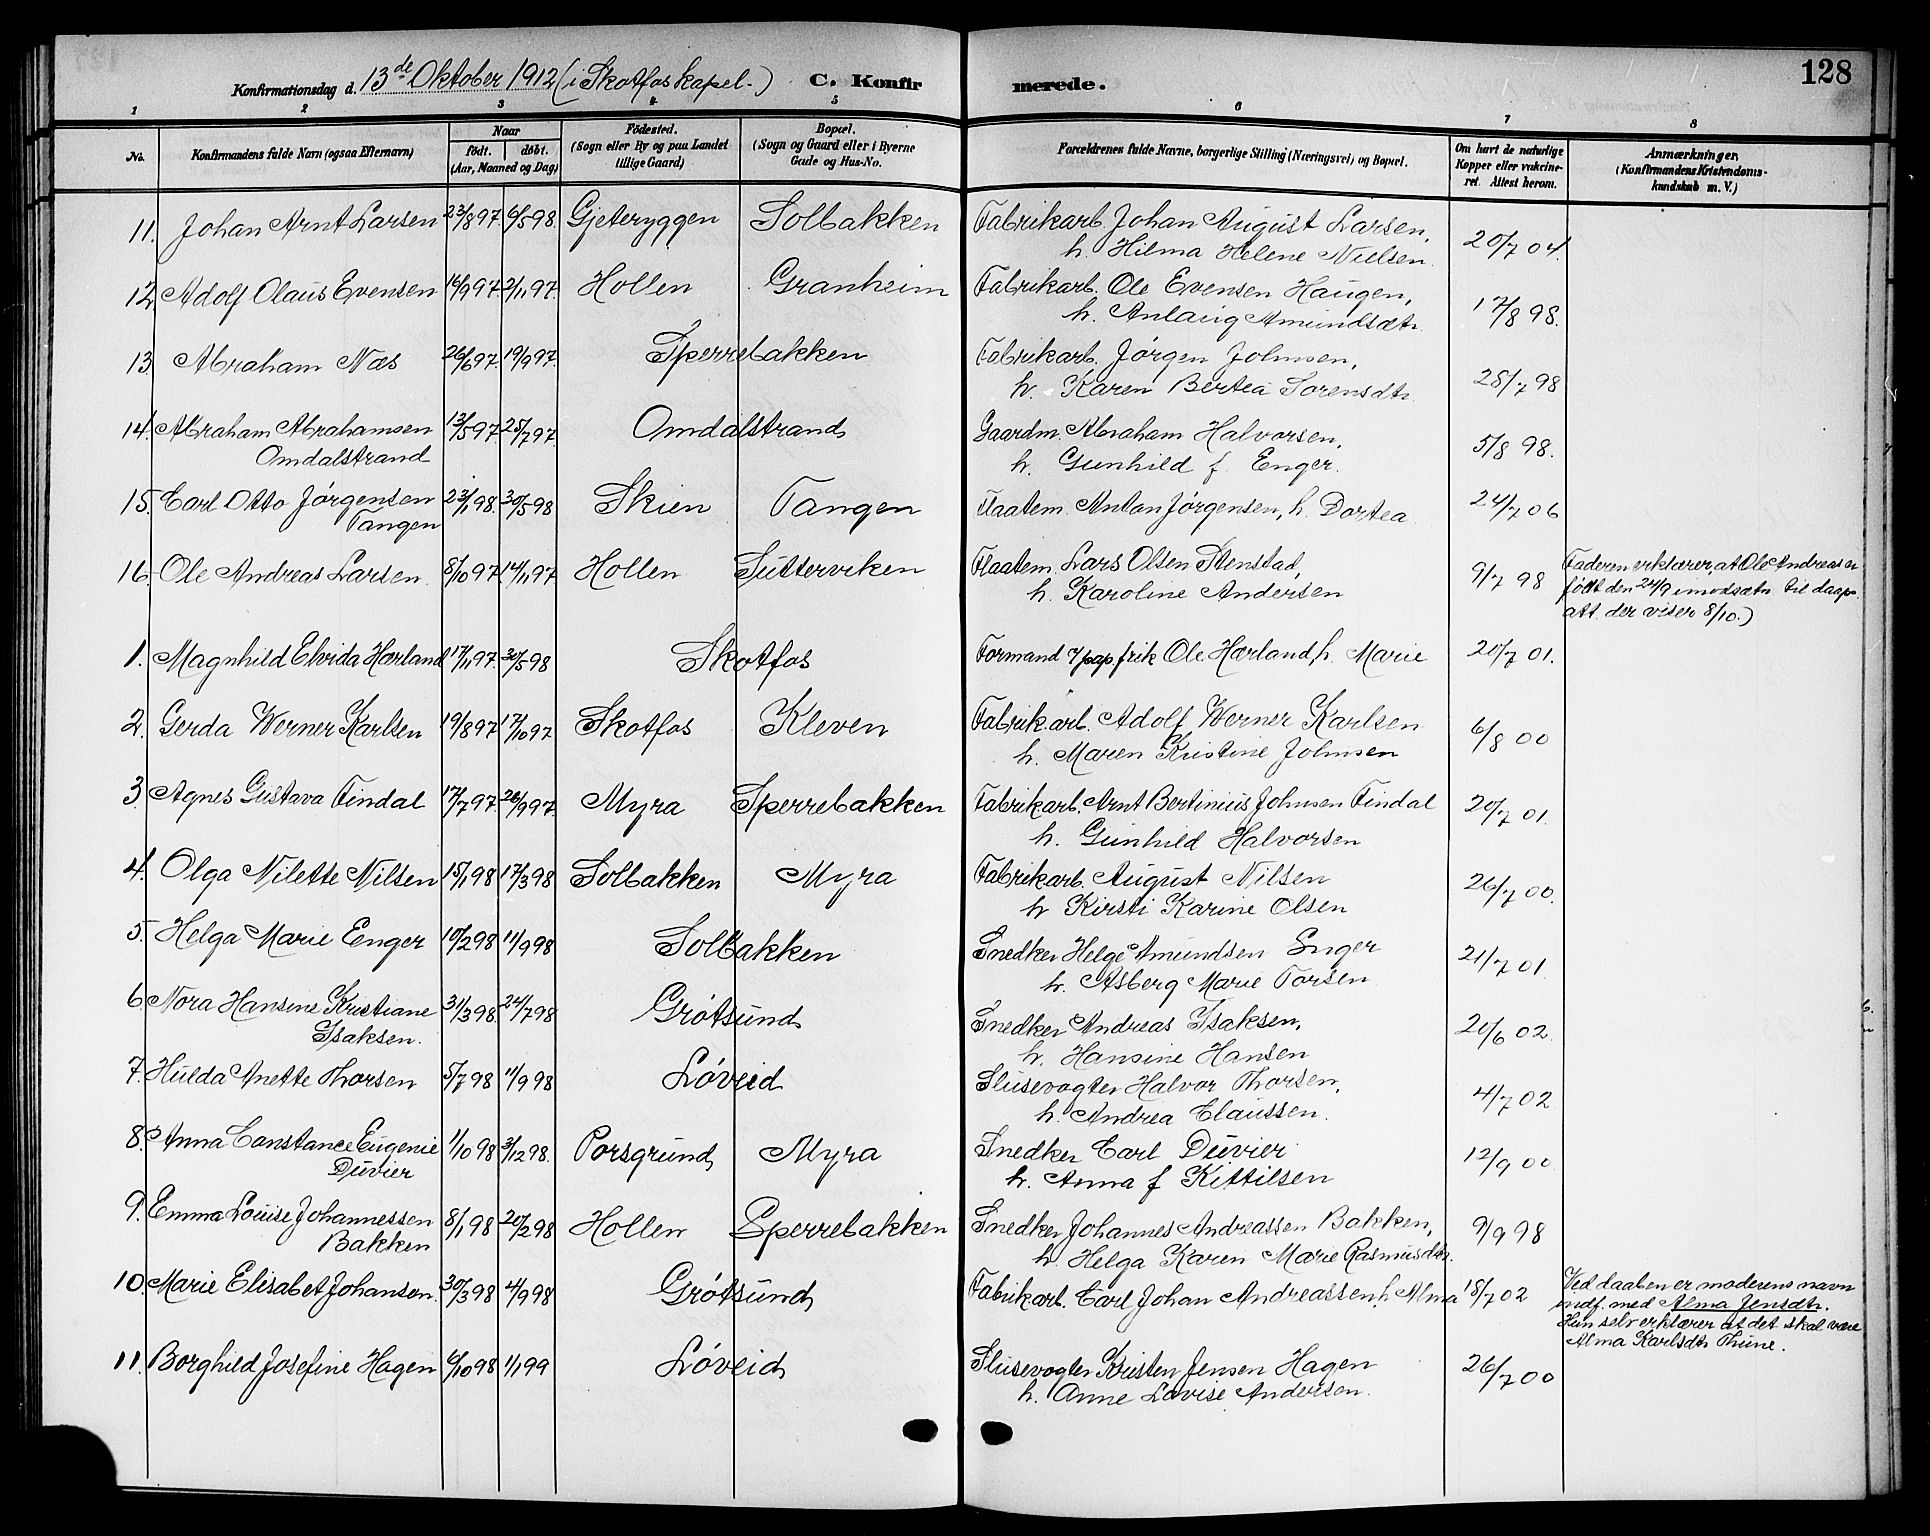 128
Konfirmationsdag d. 13de Oktober 1912 (i Skotfos kapel.) C. Konfirmerede.
1 2 3 4 5 6 7 8
No. Konfirmandens fulde Navn (ogsaa Efternavn) Naar født. døbt. (Aar, Maaned og Dag) Fødested. (Sogn eller By og paa Landet tillige Gaard) Bopæl. (Sogn og Gaard eller i Byerne Gade og Hus-No. Forældrenes fulde Navne, borgerlige Stilling (Næringsvei) og Bopæl. Om havt de naturlige Kopper eller vakcineret. Attest herom. Anmærkninger. (Konfirmandens Kristendomskundskab m. V.)
11. Johan Arnt Larsen 23/8 97. 6/5 98. Gjeteryggen Solbakken Fabrikarb. Johan August Larsen, 20/7 04.
h. Hilma Helene Nielsen.
12. Adolf Olaus Evensen 16/9 97. 2/11 97. Hollen Granheim Fabrikarb. Ole Evensen Haugen, 17/8 98.
h. Anlaug Amundsdtr.
13. Abraham Næs 26/6 97. 19/9 97. Sperrebakken Fabrikarb. Jørgen Johnsen, 28/7 98
h. Karen Bertea Sorensdtr.
14. Abraham Abrahamsen 13/5 97. 25/7 97. Omdalstrand Gaardm. Abraham Halvorsen, 5/8 98.
Omdalstrand h. Gunhild f. Enger.
15. Carl Otto Jørgensen 23/1 98. 30/5 98 Skien Tangen Flaatem. Anton Jørgensen, h. Dortea 24/7 06
Tangen
16. Ole Andreas Larsen. 8/10 97 14/11 97 Hollen Sutterviken Flaatem. Lars Olsen Stenstad, 9/7 98 Faderen erklærer, at Ole Andreas er
h. Karoline Andersen født den 24/9 imodsætn. til daaps
att. der viser 8/10.)
1. Magnhild Elvida Hærland 17/11 97. 30/5 98 Skotfos Formand v/pap.frik Ole Hærland, h. Marie 20/7 01.
2. Gerda Werner Karlsen 19/8 97 17/10 97 Skotfos Kleven Fabrik.arb. Adolf Werner Karlsen 6/8 00
h. Maren Kristine Johnsen
3. Agnes Gustava Findal 17/7 97. 26/9 97. Myra Sperrebakken Fabrikarb. Arnt Bertinius Johnsen Findal 20/7 01.
h. Gunhild Halvorsen
4. Olga Nilette Nilsen 15/1 98 17/3 98 Solbakken Myra Fabrikarb. August Nilsen 26/7 00.
h. Kirsti Karine Olsen
5. Helga Marie Eenger 10/2 98 11/9 98 Solbakken Snedker Helge Amundsen Enger 21/7 01
h. Asberg Marie Torsen
6. Nora Hansine Kristiane 31/3 98. 24/7 98 Grøtsund Snedker Andreas Isaksen, 20/6 02.
Isaksen. h. Hansine Hansen
7. Hulda Anette Thorsen 5/7 98 11/9 98 Løveid Slusevogter Halvor Thorsen, 4/7 02
h. Andrea Claussen.
8. Anna Constance Eugenie 1/10 98 3/12 98. Porsgrund Myra Snedker Carl Duvier 12/9 00
Duvier h. Anna f Kittilsen
9. Emma Louise Johannessen 8/1 98 20/2 98 Hollen Sperrebakken Snedker Johannes Andreassen Bakken, 9/9 98
Bakken h. Helga Karen Marie Rasmusdtr.
10. Marie Elisabet Johansen. 30/3 98 4/9 98 Grøtsund Fabrikarb. Carl Johan Andreassen h. Alma 18/7 02 Ved daaben er moderens navn
indf. med Alma Jensdtr.
Hun selv erklærer at det skal være
Alma Karlsdtr Thune.
11. Borghild Josefine Hagen 6/10 98 1/1 99 Løveid Slusevogter Kristen Jensen Hagen 26/7 00
h. Anne Lovise Andersen.